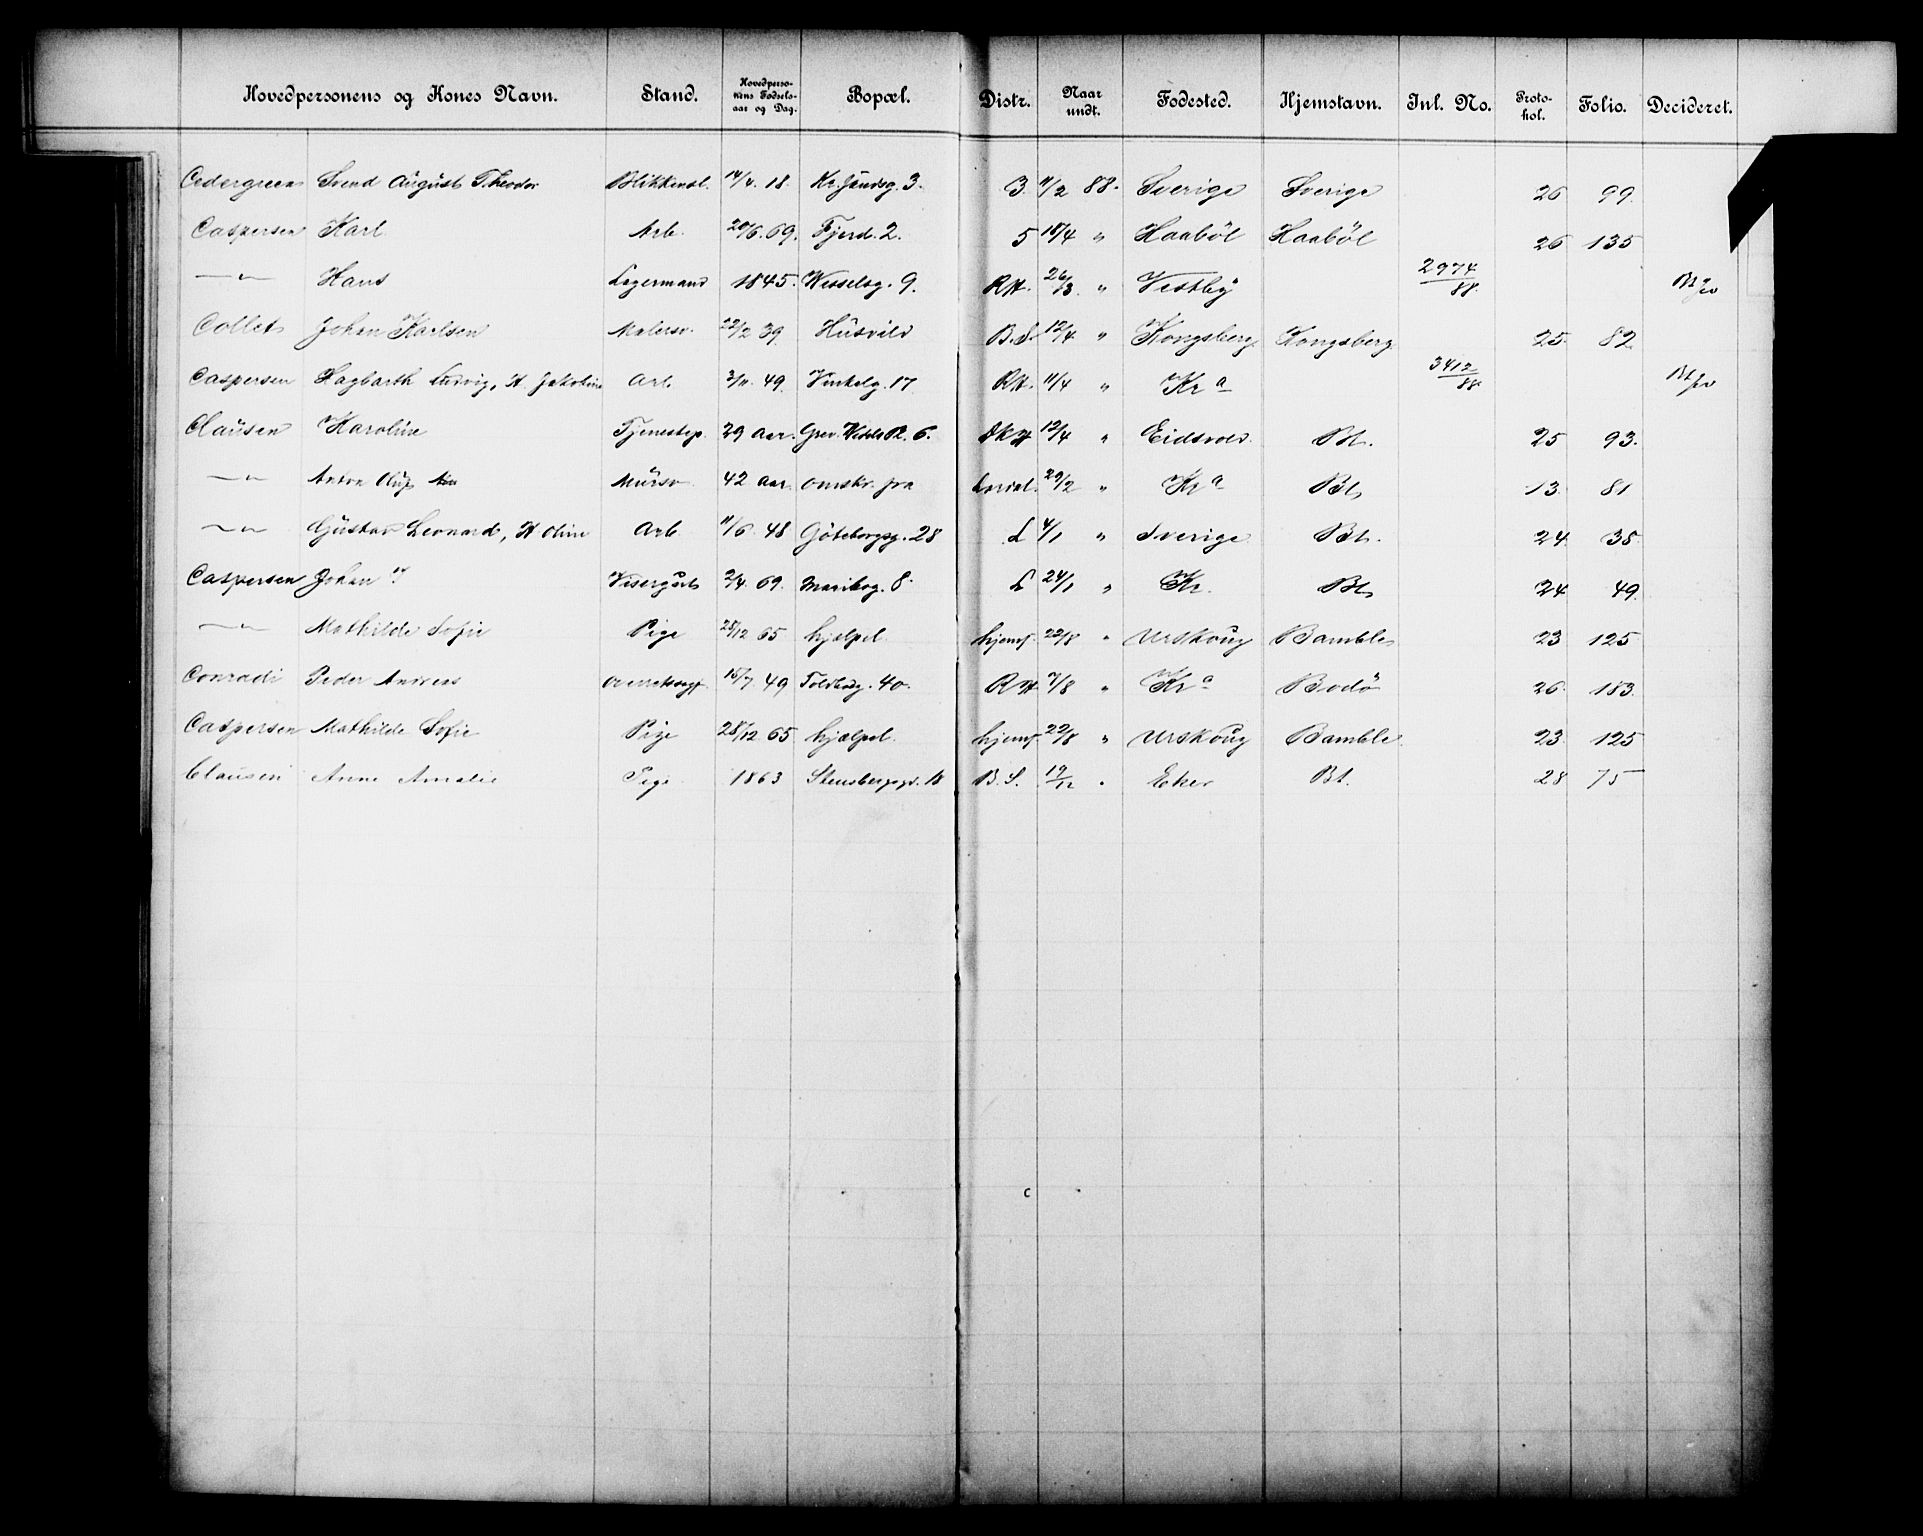 Hovedpersonens og Kones Navn. Stand. Hovedperso-nens Fødsels-aar og Dag. Bopæl. Distr. Naar undt. Fødested. Hjemstavn. Inl. No. Proto-kol. Folio. Decideret.
Cedergreen Svend August Theodor Blikkensl. 14/4. 18. Kr. Jandsg. 3. 3. 11/2 88. Sverige Sverige 26 99.
Caspersen Karl Arb. 20/6. 69. Fjerd. 2. 5 18/4 " Haaböl Haaböl 26 135
—"— Hans Lagermand 1845. Wesselsg. 9. RH. 26/3. " Vestby 2974/88.
Collet Johan Karlsen Malersv. 22/2 39. Husvild B.S. 12/4 " Kongsberg Kongsberg 25 82.
Caspersen Hagbarth Ludvig, H. Jakobine Arb. 3/11. 49. Vinkelg. 17. RH. 11/4 " Kr a 3412/88.
Clausen Karoline Tjenestep. 29 Aar. Grev. Wedels Pl. 6. 12/4 " Eidsvold. Bt. 25 93.
—"— Anton Oluf Mursv. 42 Aar. omstr. fra 29/2 " Kr a Bt. 13. 81
—"— Gustav Leonard, H Oline Arb 11/6 48 Göteborgsg. 28 L 4/1 " Sverige Bt. 24. 38.
Caspersen Johan Visergut 2/4. 69. Maribog. 8. L 24/1 " Kr. Bt. 24 49.
—"— Mathilde Sofie Pige 28/12 65 hjælpel. hjemf. 22/8 " Urskoug Bamble 23 125
Conradi Peder Andreas 15/7. 49 Toldbodg. 40. RH 7/8 " Kr a Bodö 26. 183.
Caspersen Mathilde Sofie Pige 28/12 65 hjælpel. hjemf. 22/8 " Urskoug Bamble. 23. 125
Clausen Anne Amalie Pige 1863 Stensbergsgd. 18 B. S. 19/12 " Eker Bt. 28 75
c